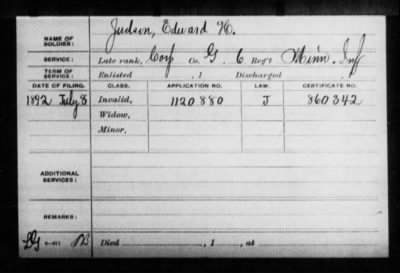 NAME OF SOLDIER: Judson, Edward H.
SERVICE: Late rank, Corp Co. G. 6 Reg't Minn. Inf
TERM OF SERVICE: Enlisted , 1 Discharged , 1
DATE OF FILING. CLASS. APPLICATION NO. LAW. CERTIFICATE NO.
1892 July 8 Invalid, 1120.880 J 860342
Widow,
Minor,
ADDITIONAL SERVICES:
REMARKS:
Died , 1 , at